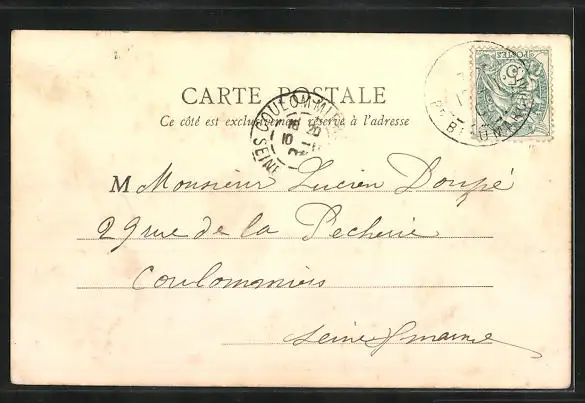 CARTE POSTALE
Ce côté est exclusivement réservé à l'adresse
COULOMMIERS
SEINE
POSTES
M Monsieur Lucien Doupé
29 rue de la Pecherie
Coulommiers
Seine & marne